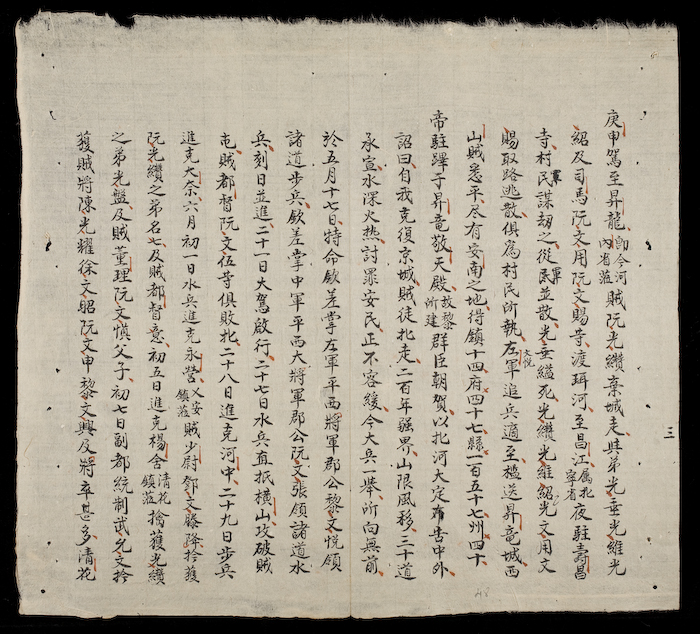 庚申駕至昇龍即今河內省蒞賊阮光纘棄城走與弟光垂光維光
紹及司馬阮文用阮文賜等渡珥河至昌江属北寧省夜駐壽昌
寺村民謀劫之從軍並散光垂縊死光纘光維紹光文用文
賜取路逃散俱爲村民所執左軍文悅追兵適至檻送昇竜城西
山賊悉平尽有安南之地得鎮十四府四十七縣一百五十七州四十
帝駐蹕于昇竜敬天殿故黎所建群臣朝賀以北河大定布告中外
詔曰自我克復京城賊徒北走二百年疆界山限風移三十道
承宣水深火热討罪安民正不容緩今大兵一舉所向無前
於五月十七日特命欽差掌左軍平西將軍郡公黎文悅領
諸道步兵欽差掌中軍平西大將軍郡公阮文張領諸道水
兵刻日並進二十一日大駕啟行二十七日水兵直抵橫山攻破賊
屯賊都督阮文伍等俱敗北二十八日進克河中二十九日步兵
進克大奈六月初一日水兵進克永營乂安鎮蒞賊少尉鄧文滕降拎獲
阮光纘之弟名七及賊都督意初五日進克楊舍清花鎮蒞擒獲光纘
之弟光盤及賊董理阮文慎父子初七日副都統制武允文拎
獲賊將陳光耀徐文昭阮文申黎文興及將卒甚多清花
三
48